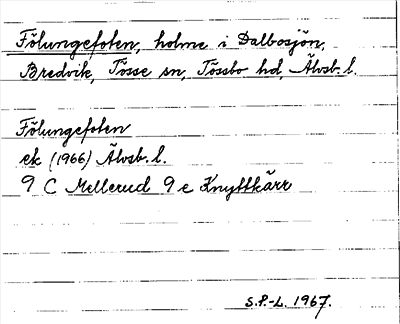 Fölungefoten, holme i Dalbosjön,
Bredvik, Tösse sn, Tössbo hd, Älvsb. l.
Fölungefoten
ek (1966) Älvsb. l.
9 C Mellerud 9 e Knyttkärr
S.P.-L. 1967.